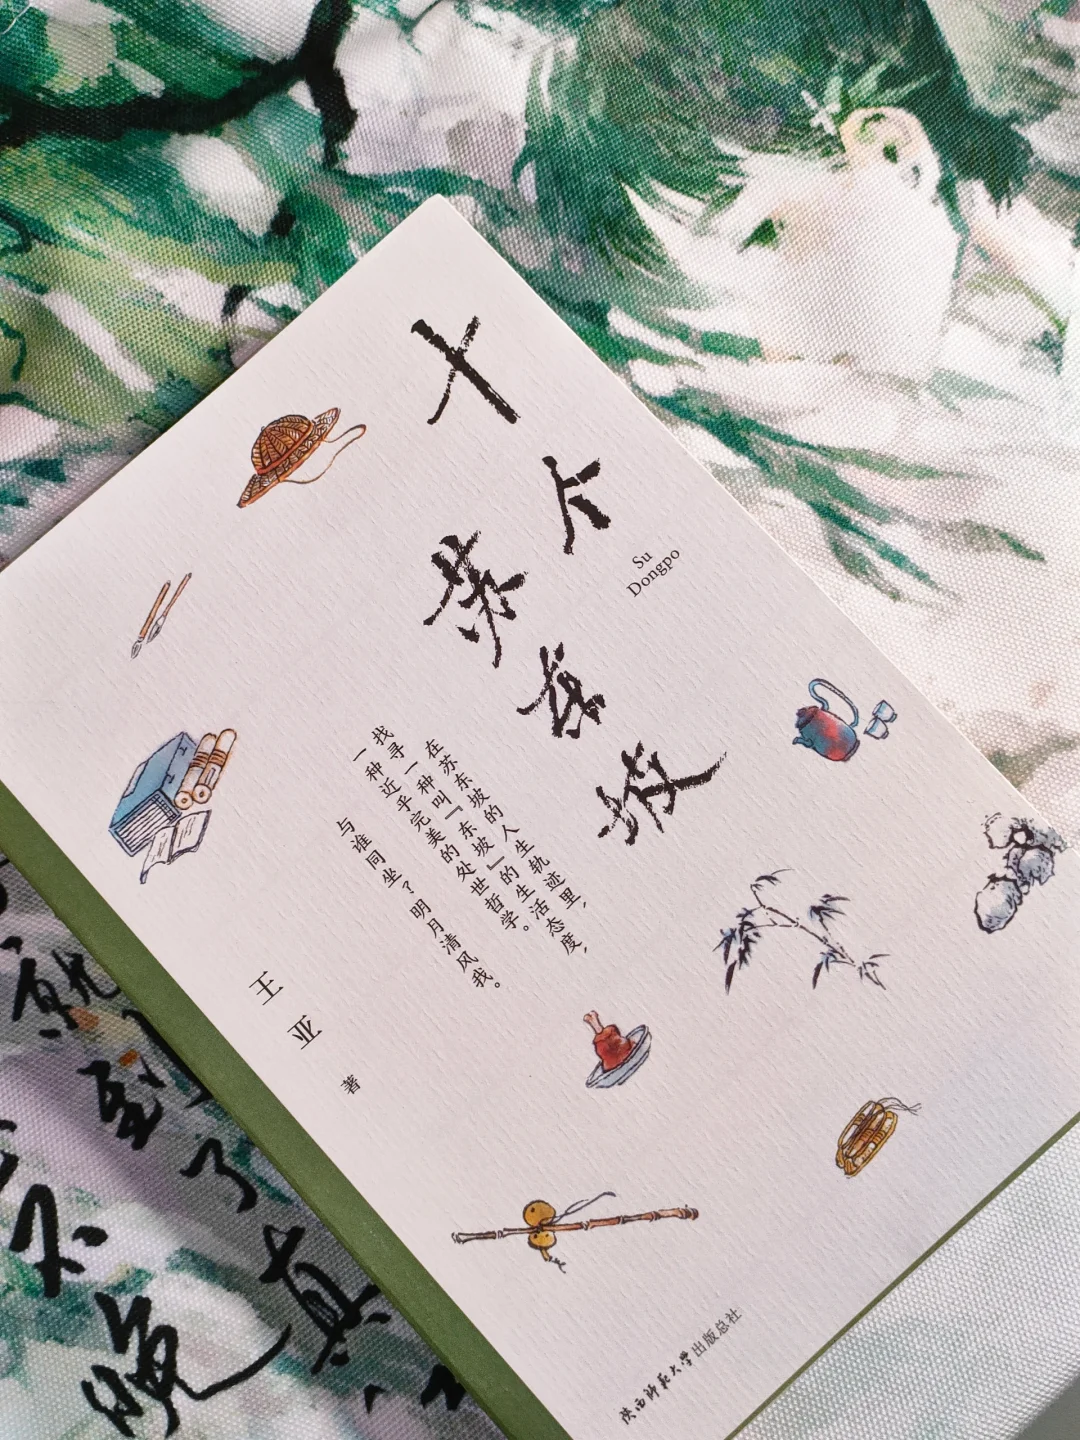 十个
苏东坡
Su
Dongpo
在苏东坡的人生轨迹里，
找寻一种叫『东坡』的生活态度，
一种近乎完美的处世哲学。
与谁同坐？明月清风我。
王亚 著
陕西师范大学出版总社
就
到了真
不晚